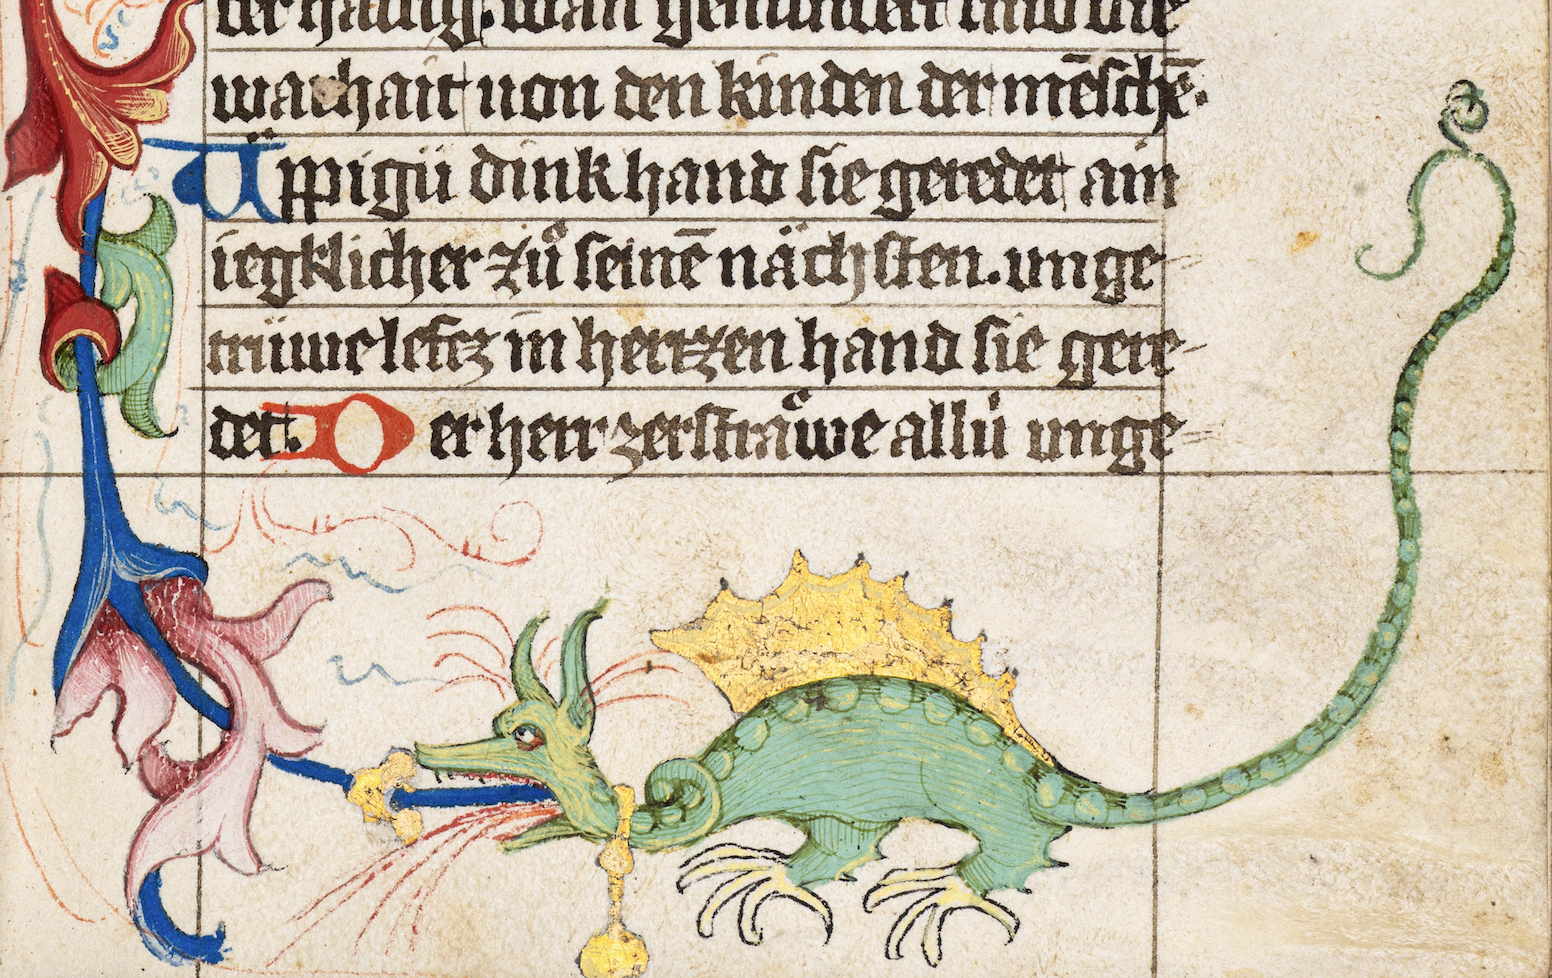 der hailig. wan gemindert sind die
warhait uon den kinden der mēschē.
Üppigü dink hand sie geredet ain
iegklicher zuͦ seinē nächsten. unge-
trüwe lefcz in herrzen hand sie gere-
det. Der herr zerstraͤwe allü unge-